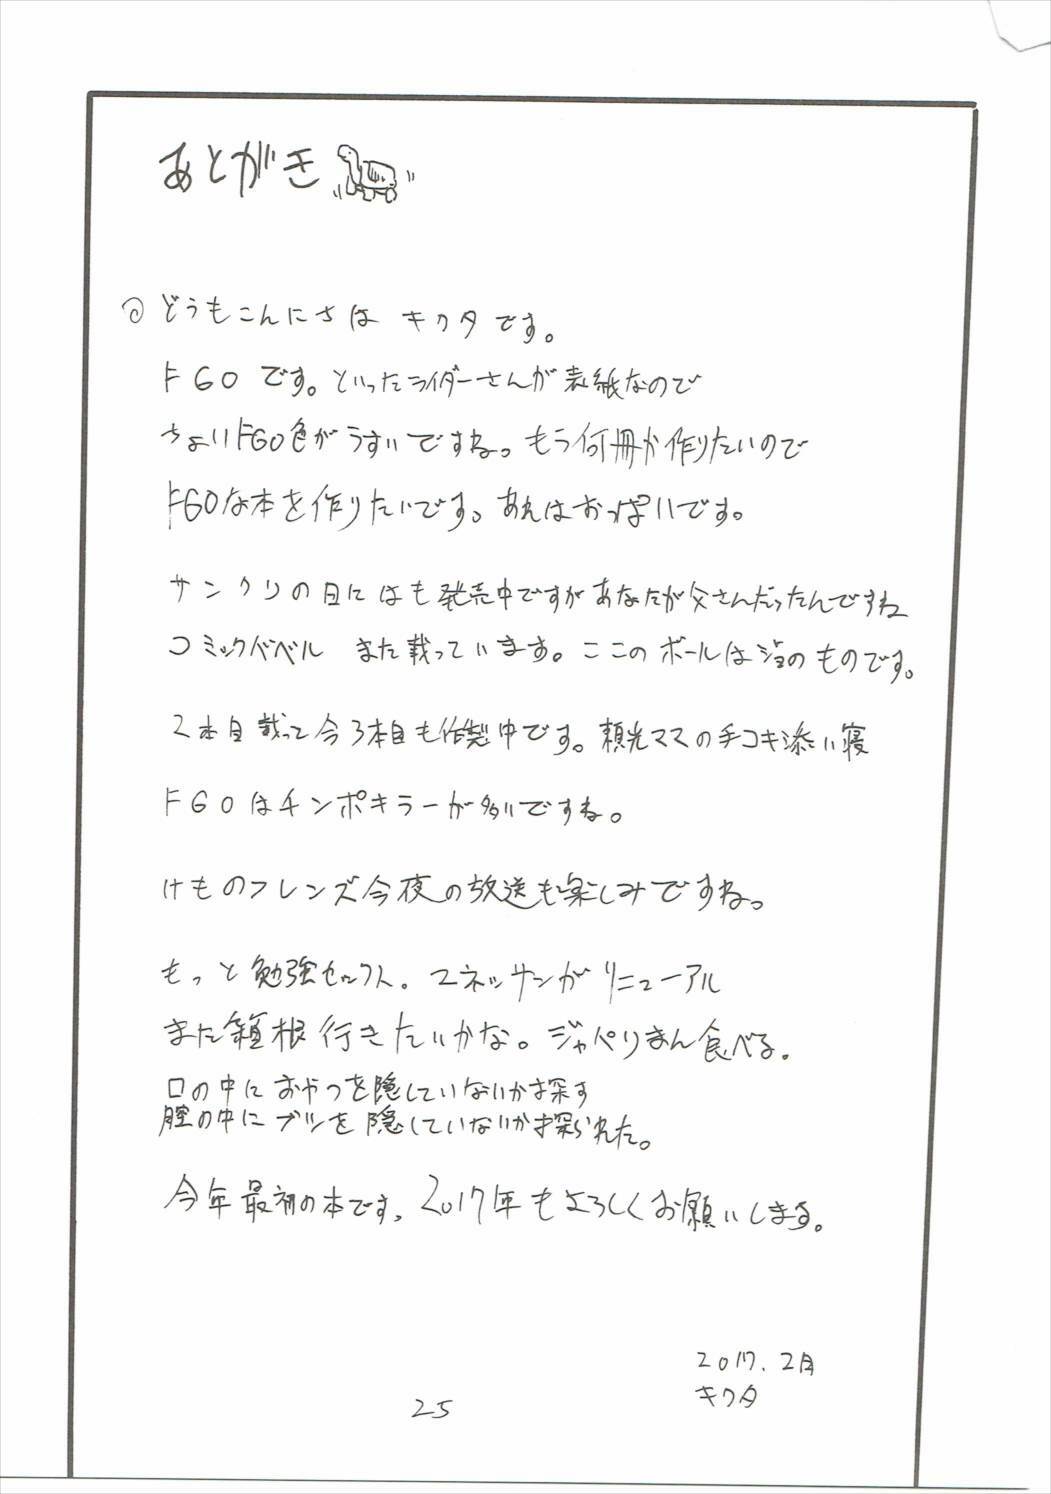 あとがき
どうもこんにちは キクタです。
FGOです。といったライダーさんが表紙なので
ちょいFGO色がうすいですね。もう何冊か作りたいので
FGOな本を作りたいです。あれはおっぱいです。
サンクリの日にはも発売中ですがあなたが父さんだったんですね
コミックバベル また載っています。ここのボールはジョのものです。
2本目載って今3本目も作製中です。頼光ママの手コキ添い寝
FGOはチンポキラーが多いですね。
けものフレンズ今夜の放送も楽しみですねっ
もっと勉強セックス。ユネッサンがリニューアル
また箱根行きたいかな。ジャパリまん食べる。
口の中におやつを隠していないか探す
膣の中にブツを隠していないか探られた。
今年最初の本です。2017年もよろしくお願いします。
2017.2月
キクタ
25